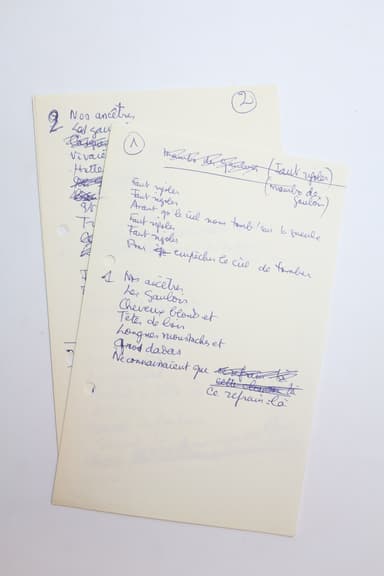 2
2 Nos ancêtres
Les gau
Vivaie
Hutte
1
Mambo des gaulois (Faut rigoler
(Mambo des
gaulois)
Faut rigoler
Faut rigoler
Avant qu'le ciel nous tomb' sur la gueule
Faut rigoler
Faut rigoler
Pour empêcher le ciel de tomber
1 Nos ancêtres
Les gaulois
Cheveux blonds et
Têtes de bois
Longues moustaches et
Gros dadas
Ne connaissaient que ce refrain-là
ce refrain-là